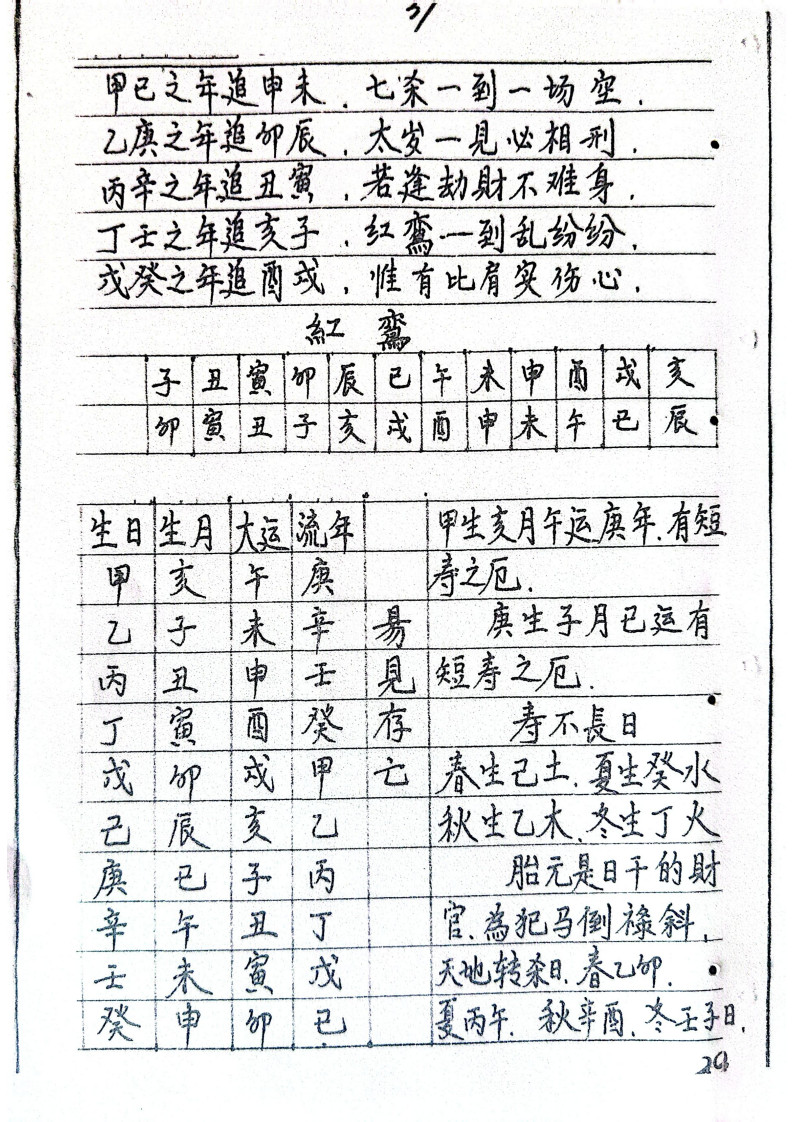 31
甲己之年追申未，七杀一到一场空，
乙庚之年追卯辰，太岁一見必相刑，
丙辛之年追丑寅，若逢劫財不难身，
丁壬之年追亥子，红鸾一到乱纷纷，
戊癸之年追酉戌，惟有比肩实伤心，
紅鸞
子 丑 寅 卯 辰 巳 午 未 申 酉 戌 亥
卯 寅 丑 子 亥 戌 酉 申 未 午 巳 辰
生日 生月 大运 流年
甲 亥 午 庚
乙 子 未 辛 易
丙 丑 申 壬 見
丁 寅 酉 癸 存
戊 卯 戌 甲 亡
己 辰 亥 乙
庚 巳 子 丙
辛 午 丑 丁
壬 未 寅 戊
癸 申 卯 己
甲生亥月午运庚年，有短
寿之厄．
庚生子月巳运有
短寿之厄．
寿不長日
春生己土，夏生癸水
秋生乙木，冬生丁火
胎元是日干的財
官，為犯马倒祿斜，
天地转杀日，春乙卯，
夏丙午，秋辛酉，冬壬子日，
29